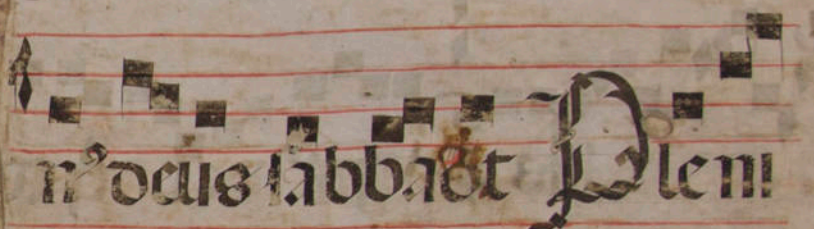 nꝰ deus sabbaot Pleni